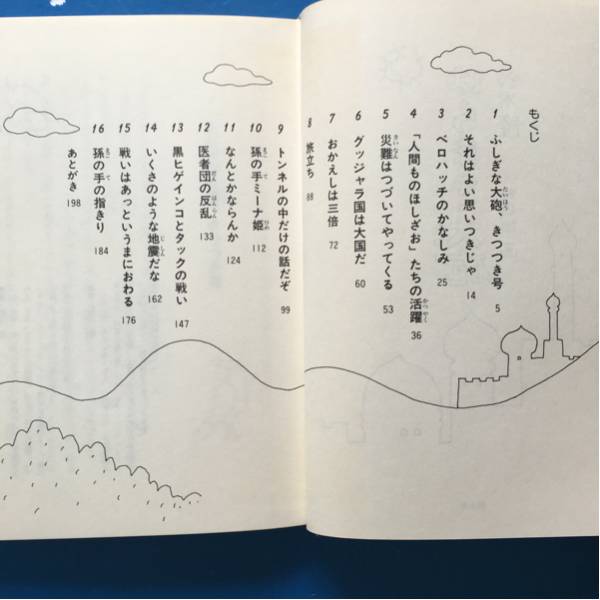 もくじ
1 ふしぎな大砲、きつつき号 5
2 それはよい思いつきじゃ 14
3 ベロハッチのかなしみ 25
4 「人間ものほしざお」たちの活躍 36
5 災難はつづいてやってくる 53
6 グッジャラ国は大国だ 60
7 おかえしは三倍 72
8 旅立ち 88
9 トンネルの中だけの話だぞ 99
10 孫の手ミーナ姫 112
11 なんとかならんか 124
12 医者団の反乱 133
13 黒ヒゲインコとタックの戦い 147
14 いくさのような地震だな 162
15 戦いはあっというまにおわる 176
16 孫の手の指きり 184
あとがき 198